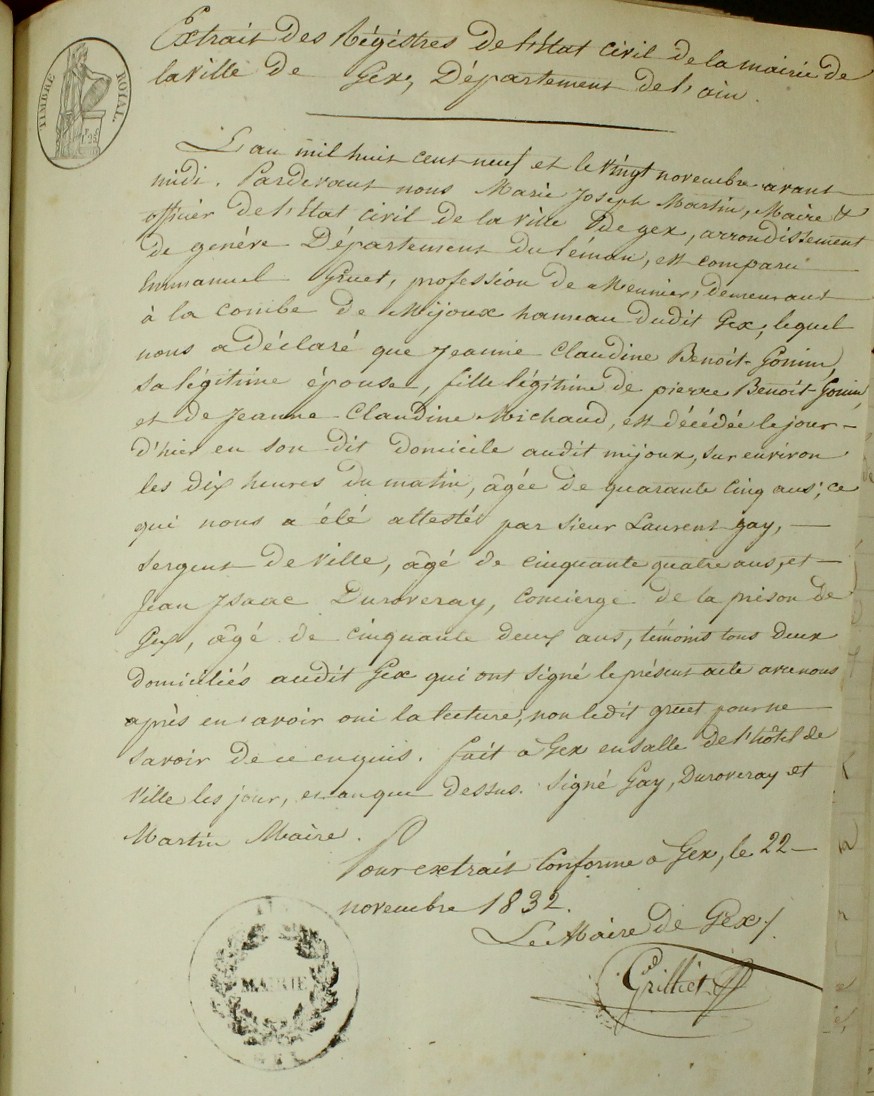 TIMBRE ROYAL.
Extrait des Régistres de l'État civil de la mairie de
la Ville de Gex, Département de l'ain.
L'an mil huit cent neuf et le vingt novembre avant
midi. Pardevant nous Marie Joseph Martin, Maire &
officier de l'État civil de la ville de gex, arrondissement
de genéve Département du léman, est comparu
Emmanuel Gruet, profession de Meunier, demeurant
à la combe de Mijoux hameau dudit Gex, lequel
nous a déclaré que Jeanne Claudine Benoit-Gonin,
sa légitime épouse, fille légitime de pierre Benoit-Gonin,
et de Jeanne-Claudine Michaud, est décédée le jour-
d'hier en son dit domicile audit mijoux, sur environ
les dix heures du matin, âgée de quarante cinq ans; ce
qui nous a été attesté par sieur Laurent gay,
Sergent de Ville, âgé de cinquante quatre ans, et
Jean Isaac Duroveray, concierge de la prison de
Gex, âgé de cinquante deux ans, témoins tous deux
domiciliés audit Gex qui ont signé le présent acte avec nous
après en avoir oui la lecture, non ledit gruet pour ne
savoir de ce enquis. fait à Gex en salle de l'hôtel de
Ville les jour, et an que dessus. Signé Gay, Duroveray et
Martin Maire.
Pour extrait Conforme à Gex, le 22
novembre 1832.
Le Maire de Gex,
Grilliet
MAIRIE
GEX